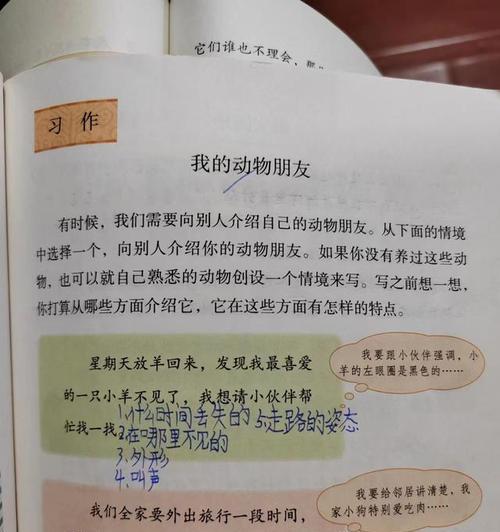 它们谁也不理会，那
习作
我的动物朋友
有时候，我们需要向别人介绍自己的动物朋友。从下面的情境
中选择一个，向别人介绍你的动物朋友。如果你没有养过这些动
物，也可以就自己熟悉的动物创设一个情境来写。写之前想一想，
你打算从哪些方面介绍它，它在这些方面有怎样的特点。
星期天放羊回来，发现我最喜爱
的一只小羊不见了，我想请小伙伴帮
忙找一找。
1.什么时间丢失的 5走路的姿态
2.在哪里不见的
3.外形
4.叫声
我要跟小伙伴强调，小
羊的左眼圈是黑色的……
我要给邻居讲清楚，我
家小狗特别爱吃肉……
我们全家要外出旅行一段时间，